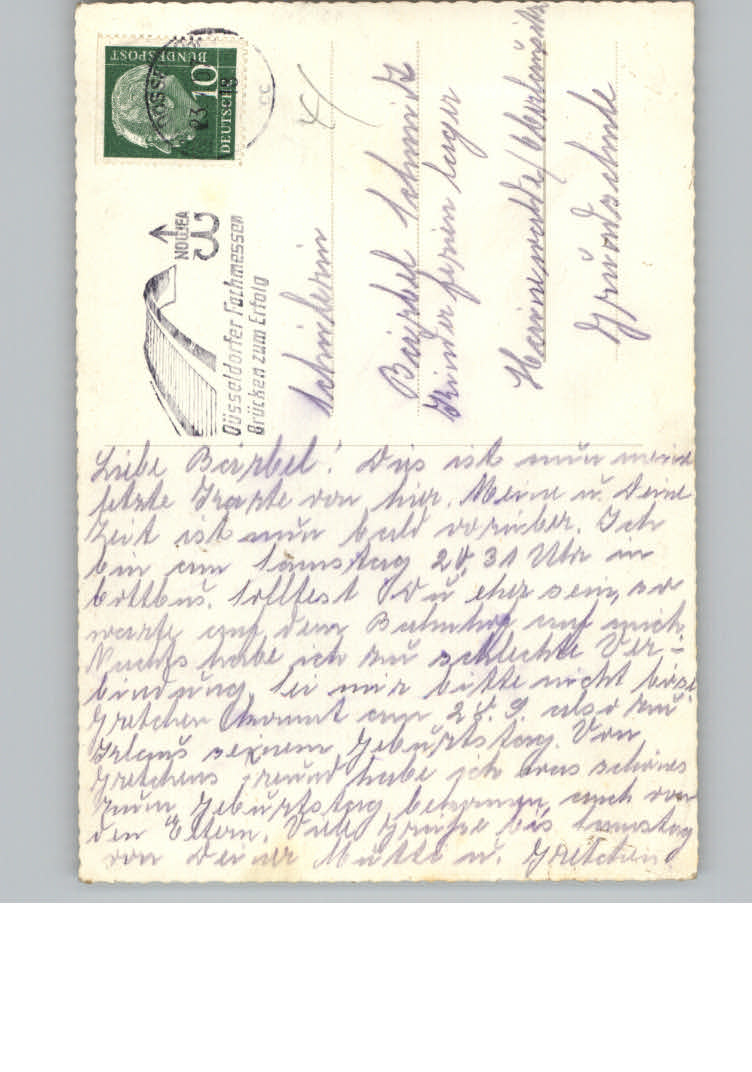 DEUTSCHE
BUNDESPOST
10
NOWEA
Düsseldorfer Fachmessen
Brücken zum Erfolg
Schülerin
Bärbel Schmidt
Kinder ferien lager
Hainewalde / Oberlausitz
Grundschule
Liebe Bärbel! Dies ist nun meine
letzte Karte von hier. Meine u. Deine
Zeit ist nun bald vorüber. Ich
bin am Samstag 20,31 Uhr in
Cottbus. Solltest Du eher sein, so
warte auf dem Bahnhof auf mich
Nachts habe ich zu schlechte Ver-
bindung. Sei mir bitte nicht böse
Gretchen kommt am 28. 9. also zu
Klaus seinem Geburtstag. Von
Gretchens Freund habe ich was schönes
zum Geburtstag bekommen, auch von
den Eltern. Viele Grüße bis Samstag
von Deiner Mutti u. Gretchen